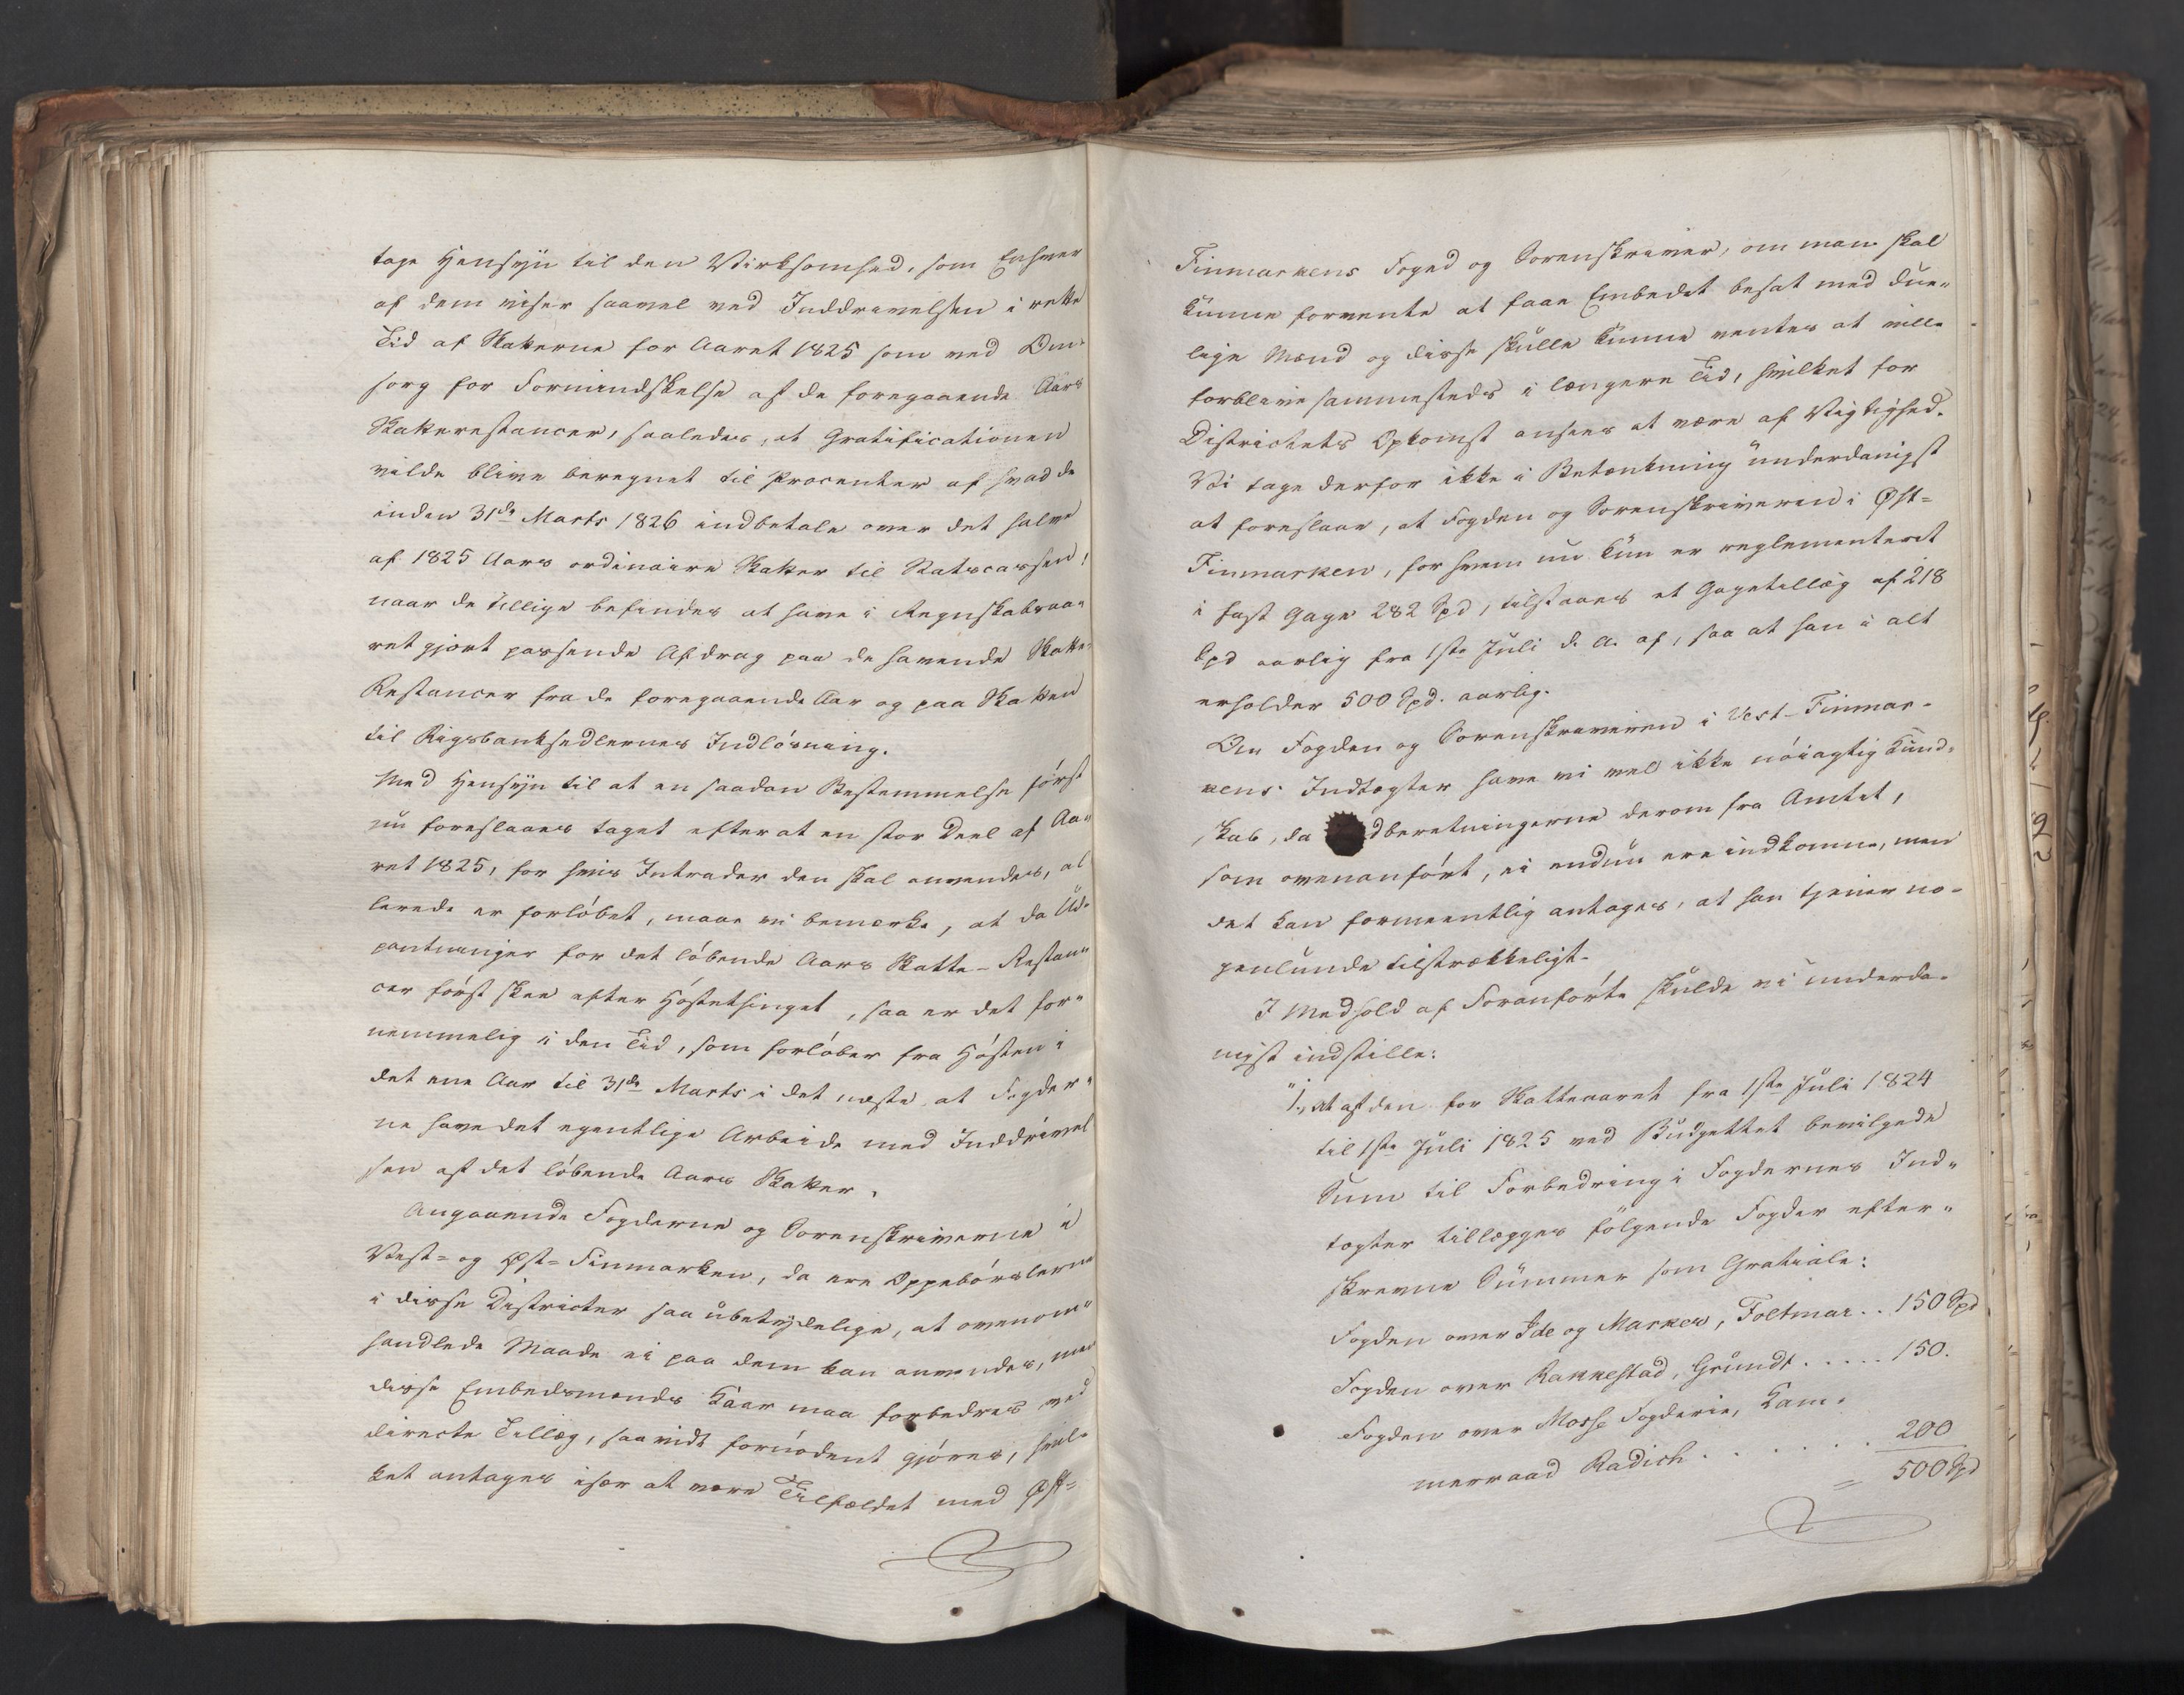 tage Hensyn til den Virksomhed, som Enhver
af dem viser saavel ved Inddrivelsen i rette
Tid af Skatterne for Aaret 1825 som ved Om-
sorg for Formindskelse af de foregaaende Aars
Skatterestancer, saaledes, at Gratificationen
vilde blive beregnet til Procenter af hvad de
inden 31de Marts 1826 indbetale over det halve
af 1825 Aars ordinaire Skatter til Statscassen,
naar de tillige befindes at have i Regnskabsaa-
ret gjort passende Afdrag paa de havende Skatte-
Restancer fra de foregaaende Aar og paa Skatten
til Rigsbanksedlernes Indløsning.
Med Hensyn til at en saadan Bestemmelse først
nu foreslaaes taget efter at en stor Deel af Aa-
ret 1825, for hvis Intrader den skal anvendes, al
lerede er forløbet, maae vi bemærke, at da Ud-
pantninger for det løbende Aars Skatte-Restan-
cer først skee efter Høstethinget, saa er det for-
nemmelig i den Tid, som forløber fra Høsten i
det ene Aar til 31de Marts i det næste, at Fogder-
ne have det egentlige Arbeide med Inddrivel
sen af det løbende Aars Skatter.
Angaaende Fogderne og Sorenskriverne i
Vest- og Øst-Finmarken, da ere Oppebørslerne
i disse Districter saa ubetydelige, at ovenom-
handlede Maade ei paa dem kan anvendes, men
disse Embedsmænds Kaar maa forbedres ved
directe Tillæg, saavidt fornødent gjøres, hvil-
ket antages især at være Tilfældet med Øst-
Finmarkens Foged og Sorenskriver, om man skal
kunne forvente at faae Embedet besat med due-
lige Mænd og disse skulle kunne ventes at ville
forblive sammesteds i længere Tid, hvilket for
Districtets Opkomst ansees at være af Vigtighed.
Vi tage derfor ikke i Betænkning underdanigst
at foreslaae, at Fogden og Sorenskriveren i Øst-
Finmarken, for hvem nu kun er reglementeret
i fast Gage 282 Spd, tilstaaes et Gagetillæg af 218
Spd aarlig fra 1ste Juli d. A. af, saa at han i alt
erholder 500 Spd. aarlig.
Om Fogden og Sorenskriveren i Vest-Finmar-
kens Indtægter have vi vel ikke nøiagtig Kund-
skab, da dberetningerne derom fra Amtet,
som ovenanført, ei endnu ere indkomne, men
det kan formeentlig antages, at han tjener no-
genlunde tilstrækkeligt.
I Medhold af Foranførte skulde vi underda-
nigst indstille:
"1., at af den for Skatteaaret fra 1ste Juli 1824
til 1ste Juli 1825 ved Budgettet bevilgede
Sum til Forbedring i Fogdernes Ind-
tægter tillægges følgende Fogder efter-
skrevne Summer som Gratiale:
Fogden over Ide og Marker, Foltmar.. 150 Spd
Fogden over Rakkestad, Grundt..... 150.
Fogden over Mosse Fogderie, Kam-
merraad Radich....... 200
= 500 Spd